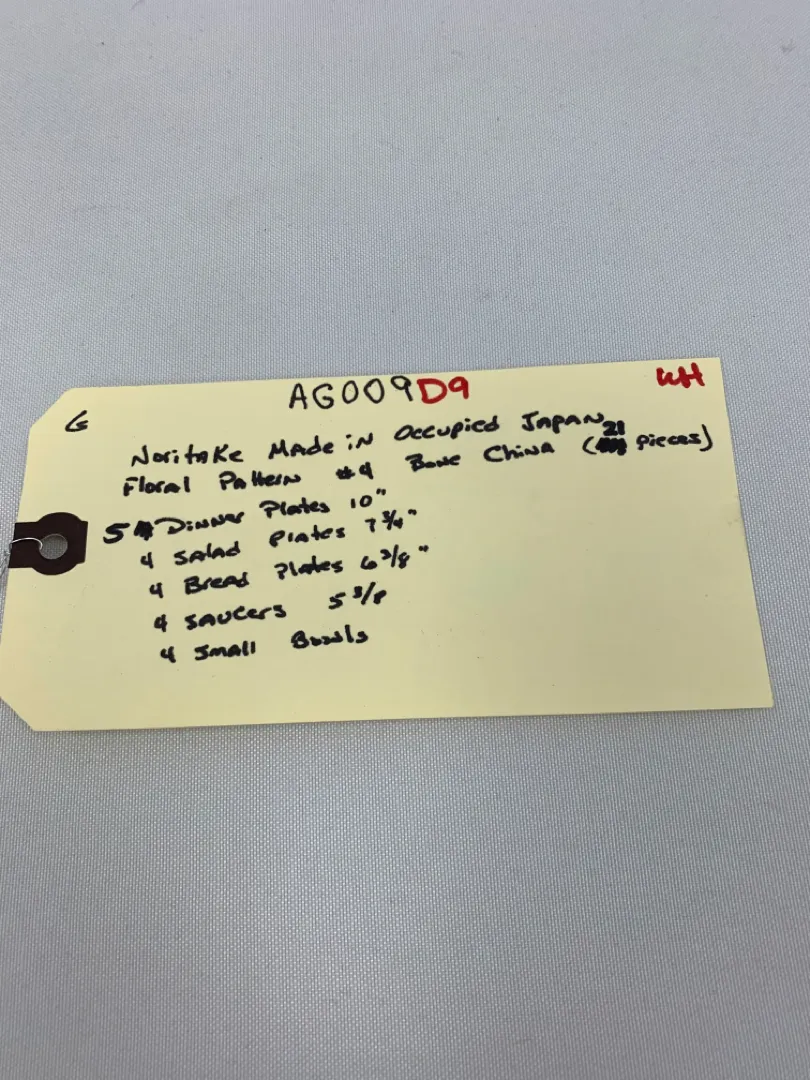 AG009D9
WH
G
Noritake Made in Occupied Japan
Floral Pattern #4 Bone China (21 pieces)
5 Dinner Plates 10"
4 Salad Plates 7 3/4"
4 Bread Plates 6 3/8"
4 Saucers 5 3/8
4 Small Bowls